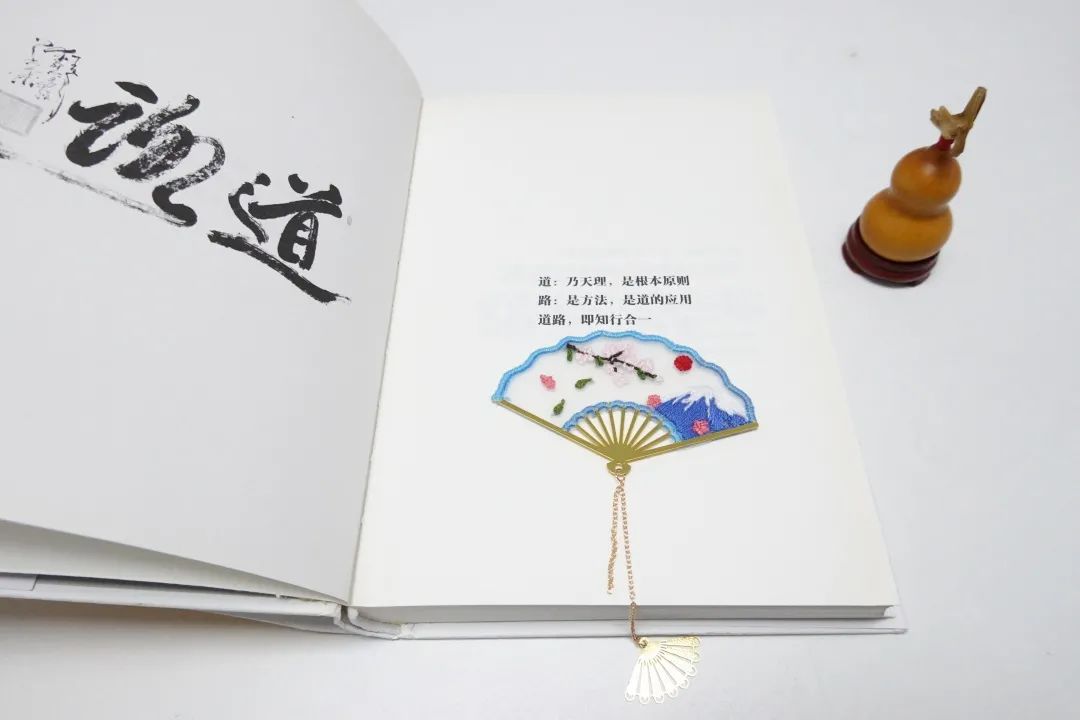 道
道：乃天理，是根本原则
路：是方法，是道的应用
道路，即知行合一